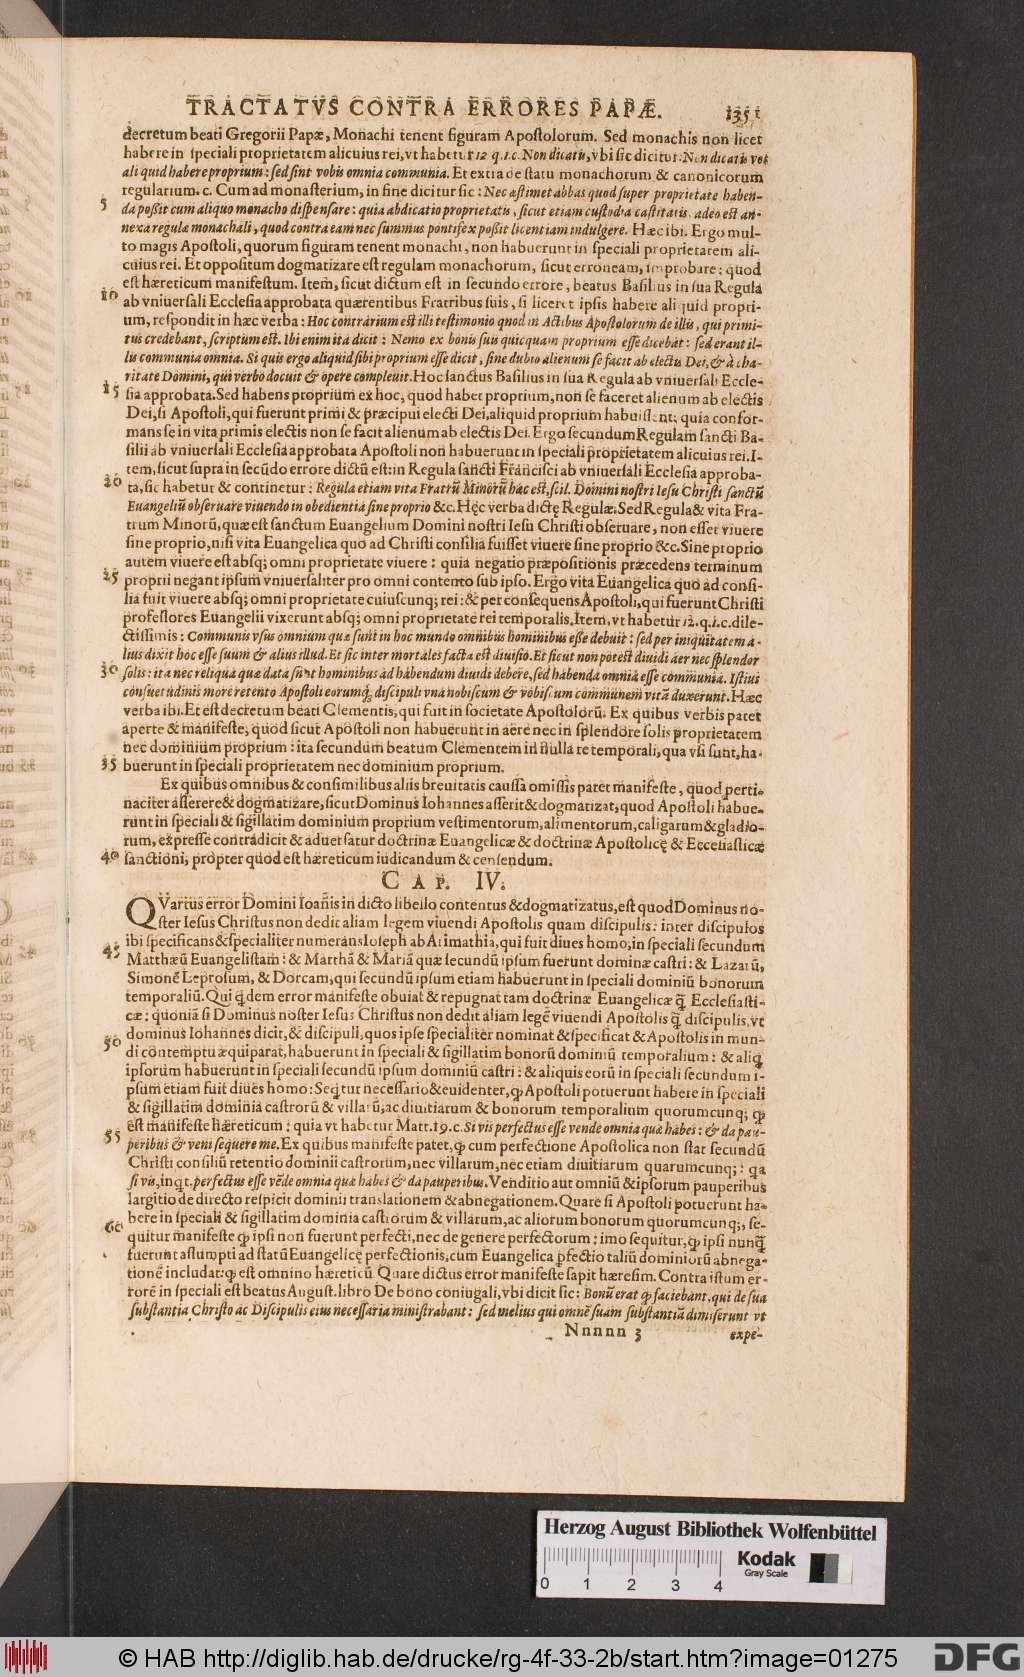 TRACTATVS CONTRA ERRORES PAPÆ. 1351
decretum beati Gregorii Papæ, Monachi tenent figuram Apostolorum. Sed monachis non licet
habere in speciali proprietatem alicuius rei, vt habetur 12 q.1.c. Non dicatis, vbi sic dicitur. Non dicatis vos
aliquid habere proprium: sed sint vobis omnia communia. Et extra de statu monachorum & canonicorum
regularium. c. Cum ad monasterium, in fine dicitur sic: Nec æstimet abbas quod super proprietate haben-
5 da poßit cum aliquo monacho dispensare: quia abdicatio proprietatis, sicut etiam custodia castitatis adeo est an-
nexa regula monachali, quod contra eam nec summus pontifex poßit licentiam indulgere. Hæc ibi. Ergo mul-
to magis Apostoli, quorum figuram tenent monachi, non habuerunt in speciali proprietatem ali-
cuius rei. Et oppositum dogmatizare est regulam monachorum, sicut erroneam, improbare: quod
est hæreticum manifestum. Item, sicut dictum est in secundo errore, beatus Basilius in sua Regula
10 ab vniuersali Ecclesia approbata quærentibus Fratribus suis, si liceret ipsis habere aliquid propri-
um, respondit in hæc verba: Hoc contrarium est illi testimonio quod in Actibus Apostolorum de illis, qui primi-
tus credebant, scriptum est. Ibi enim ita dicit: Nemo ex bonis suis quicquam proprium esse dicebat: sed erant il-
lis communia omnia. Si quis ergo aliquid sibi proprium esse dicit, sine dubio alienum se facit ab electis Dei, & à cha-
ritate Domini, qui verbo docuit & opere compleuit. Hoc sanctus Basilius in sua Regula ab vniuersali Eccle-
15 sia approbata. Sed habens proprium ex hoc, quod habet proprium, non se faceret alienum ab electis
Dei, si Apostoli, qui fuerunt primi & præcipui electi Dei, aliquid proprium habuissent: quia confor-
mans se in vita primis electis non se facit alienum ab electis Dei. Ergo secundum Regulam sancti Ba-
silii ab vniuersali Ecclesia approbata Apostoli non habuerunt in speciali proprietatem alicuius rei. I-
tem, sicut supra in secūdo errore dictū est: in Regula sancti Francisci ab vniuersali Ecclesia approba-
20 ta, sic habetur & continetur: Regula etiam vita Fratrū Minorū hæc est, scil. Domini nostri Iesu Christi sanctū
Euangeliū obseruare viuendo in obedientia sine proprio &c. Hęc verba dictę Regulæ. Sed Regula & vita Fra-
trum Minorū, quæ est sanctum Euangelium Domini nostri Iesu Christi obseruare, non esset viuere
sine proprio, nisi vita Euangelica quo ad Christi consilia fuisset viuere sine proprio &c. Sine proprio
autem viuere est absq; omni proprietate viuere: quia negatio præpositionis præcedens terminum
25 proprii negant ipsum vniuersaliter pro omni contento sub ipso. Ergo vita Euangelica quo ad consi-
lia fuit viuere absq; omni proprietate cuiuscunq; rei: & per consequens Apostoli, qui fuerunt Christi
professores Euangelii vixerunt absq; omni proprietate rei temporalis. Item, vt habetur 12. q.1.c. dile-
ctissimis: Communis vsus omnium quæ sunt in hoc mundo omnibus hominibus esse debuit: sed per iniquitatem a-
lius dixit hoc esse suum & alius illud. Et sic inter mortales facta est diuisio. Et sicut non potest diuidi aer nec splendor
30 solis: ita nec reliqua quæ data sunt hominibus ad habendum diuidi debere, sed habenda omnia esse communia. Istius
consuetudinis more retento Apostoli eorumq; discipuli vna nobiscum & vobiscum communem vitā duxerunt. Hæc
verba ibi. Et est decretum beati Clementis, qui fuit in societate Apostolorū. Ex quibus verbis patet
aperte & manifeste, quod sicut Apostoli non habuerunt in aere nec in splendore solis proprietatem
nec dominium proprium: ita secundum beatum Clementem in nulla re temporali, qua vsi sunt, ha-
35 buerunt in speciali proprietatem nec dominium proprium.
Ex quibus omnibus & consimilibus aliis breuitatis caussa omissis patet manifeste, quod perti-
naciter asserere & dogmatizare, sicut Dominus Iohannes asserit & dogmatizat, quod Apostoli habue-
runt in speciali & sigillatim dominium proprium vestimentorum, alimentorum, caligarum & gladio-
rum, expresse contradicit & aduersatur doctrinæ Euangelicæ & doctrinæ Apostolicę & Ecclesiasticæ
40 sanctioni, propter quod est hæreticum iudicandum & censendum.
CAP. IV.
QVartus error Domini Ioānis in dicto libello contentus & dogmatizatus, est quod Dominus no-
ster Iesus Christus non dedit aliam legem viuendi Apostolis quam discipulis: inter discipulos
ibi specificans & specialiter numerans Ioseph ab Arimathia, qui fuit diues homo, in speciali secundum
45 Matthæū Euangelistam: & Marthā & Mariā quæ secundū ipsum fuerunt dominæ castri: & Lazarū,
Simonē Leprosum, & Dorcam, qui secundū ipsum etiam habuerunt in speciali dominiū bonorum
temporaliū. Qui q̄dem error manifeste obuiat & repugnat tam doctrinæ Euangelicæ q̄ Ecclesiasti-
cæ: quoniā si Dominus noster Iesus Christus non dedit aliam legē viuendi Apostolis q̄ discipulis, vt
dominus Iohannes dicit, & discipuli, quos ipse specialiter nominat & specificat & Apostolis in mun-
50 di contemptu æquiparat, habuerunt in speciali & sigillatim bonorū dominiū temporalium: & aliq̄
ipsorum habuerunt in speciali secundū ipsum dominiū castri: & aliquis eorū in speciali secundum i-
psum etiam fuit diues homo: Seq̄tur necessario & euidenter, ꝙ Apostoli potuerunt habere in speciali
& sigillatim dominia castrorū & villarū, ac diuitiarum & bonorum temporalium quorumcunq; ꝙ
est manifeste hæreticum: quia vt habetur Matt. 19. c. Si vis perfectus esse vende omnia quæ habes: & da pau-
55 peribus & veni sequere me. Ex quibus manifeste patet, ꝙ cum perfectione Apostolica non stat secundū
Christi consiliū retentio dominii castrorum, nec villarum, nec etiam diuitiarum quarumcunq;: qa
si vis, inqt. perfectus esse vēde omnia quæ habes & da pauperibus. Venditio aut omniū & ipsorum pauperibus
largitio de directo respicit dominii translationem & abnegationem. Quare si Apostoli potuerunt ha-
bere in speciali & sigillatim dominia castrorum & villarum, ac aliorum bonorum quorumcunq;, se-
60 quitur manifeste ꝙ ipsi non fuerunt perfecti, nec de genere perfectorum: imo sequitur, ꝙ ipsi nunq̄
fuerunt assumpti ad statū Euangelicę perfectionis, cum Euangelica ꝑfectio taliū dominiorū abnega-
tionē includat: ꝙ est omnino hæreticū. Quare dictus error manifeste sapit hæresim. Contra istum er-
rorē in speciali est beatus August. libro De bono coniugali, vbi dicit sic: Bonū erat ꝙ faciebant, qui de sua
substantia Christo ac Discipulis eius necessaria ministrabant: sed melius qui omnē suam substantiā dimiserunt vt
Nnnnn 3 expe-
Herzog August Bibliothek Wolfenbüttel
0 1 2 3 4
Kodak
Gray Scale
© HAB http://diglib.hab.de/drucke/rg-4f-33-2b/start.htm?image=01275
DFG